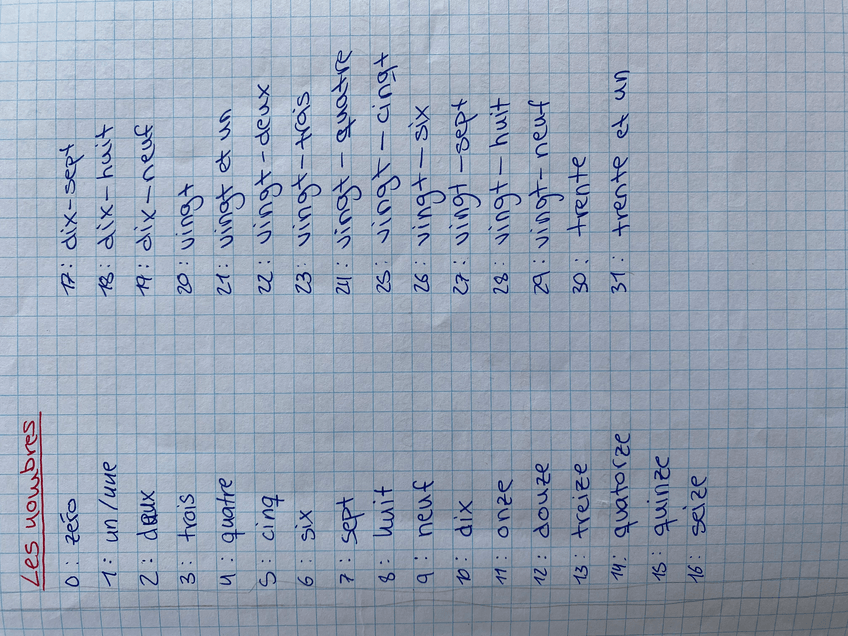 Les nombres
0: zéro
1: un/une
2: deux
3: trois
4: quatre
5: cinq
6: six
7: sept
8: huit
9: neuf
10: dix
11: onze
12: douze
13: treize
14: quatorze
15: quinze
16: seize
17: dix-sept
18: dix-huit
19: dix-neuf
20: vingt
21: vingt et un
22: vingt-deux
23: vingt-trois
24: vingt-quatre
25: vingt-cinqt
26: vingt-six
27: vingt-sept
28: vingt-huit
29: vingt-neuf
30: trente
31: trente et un